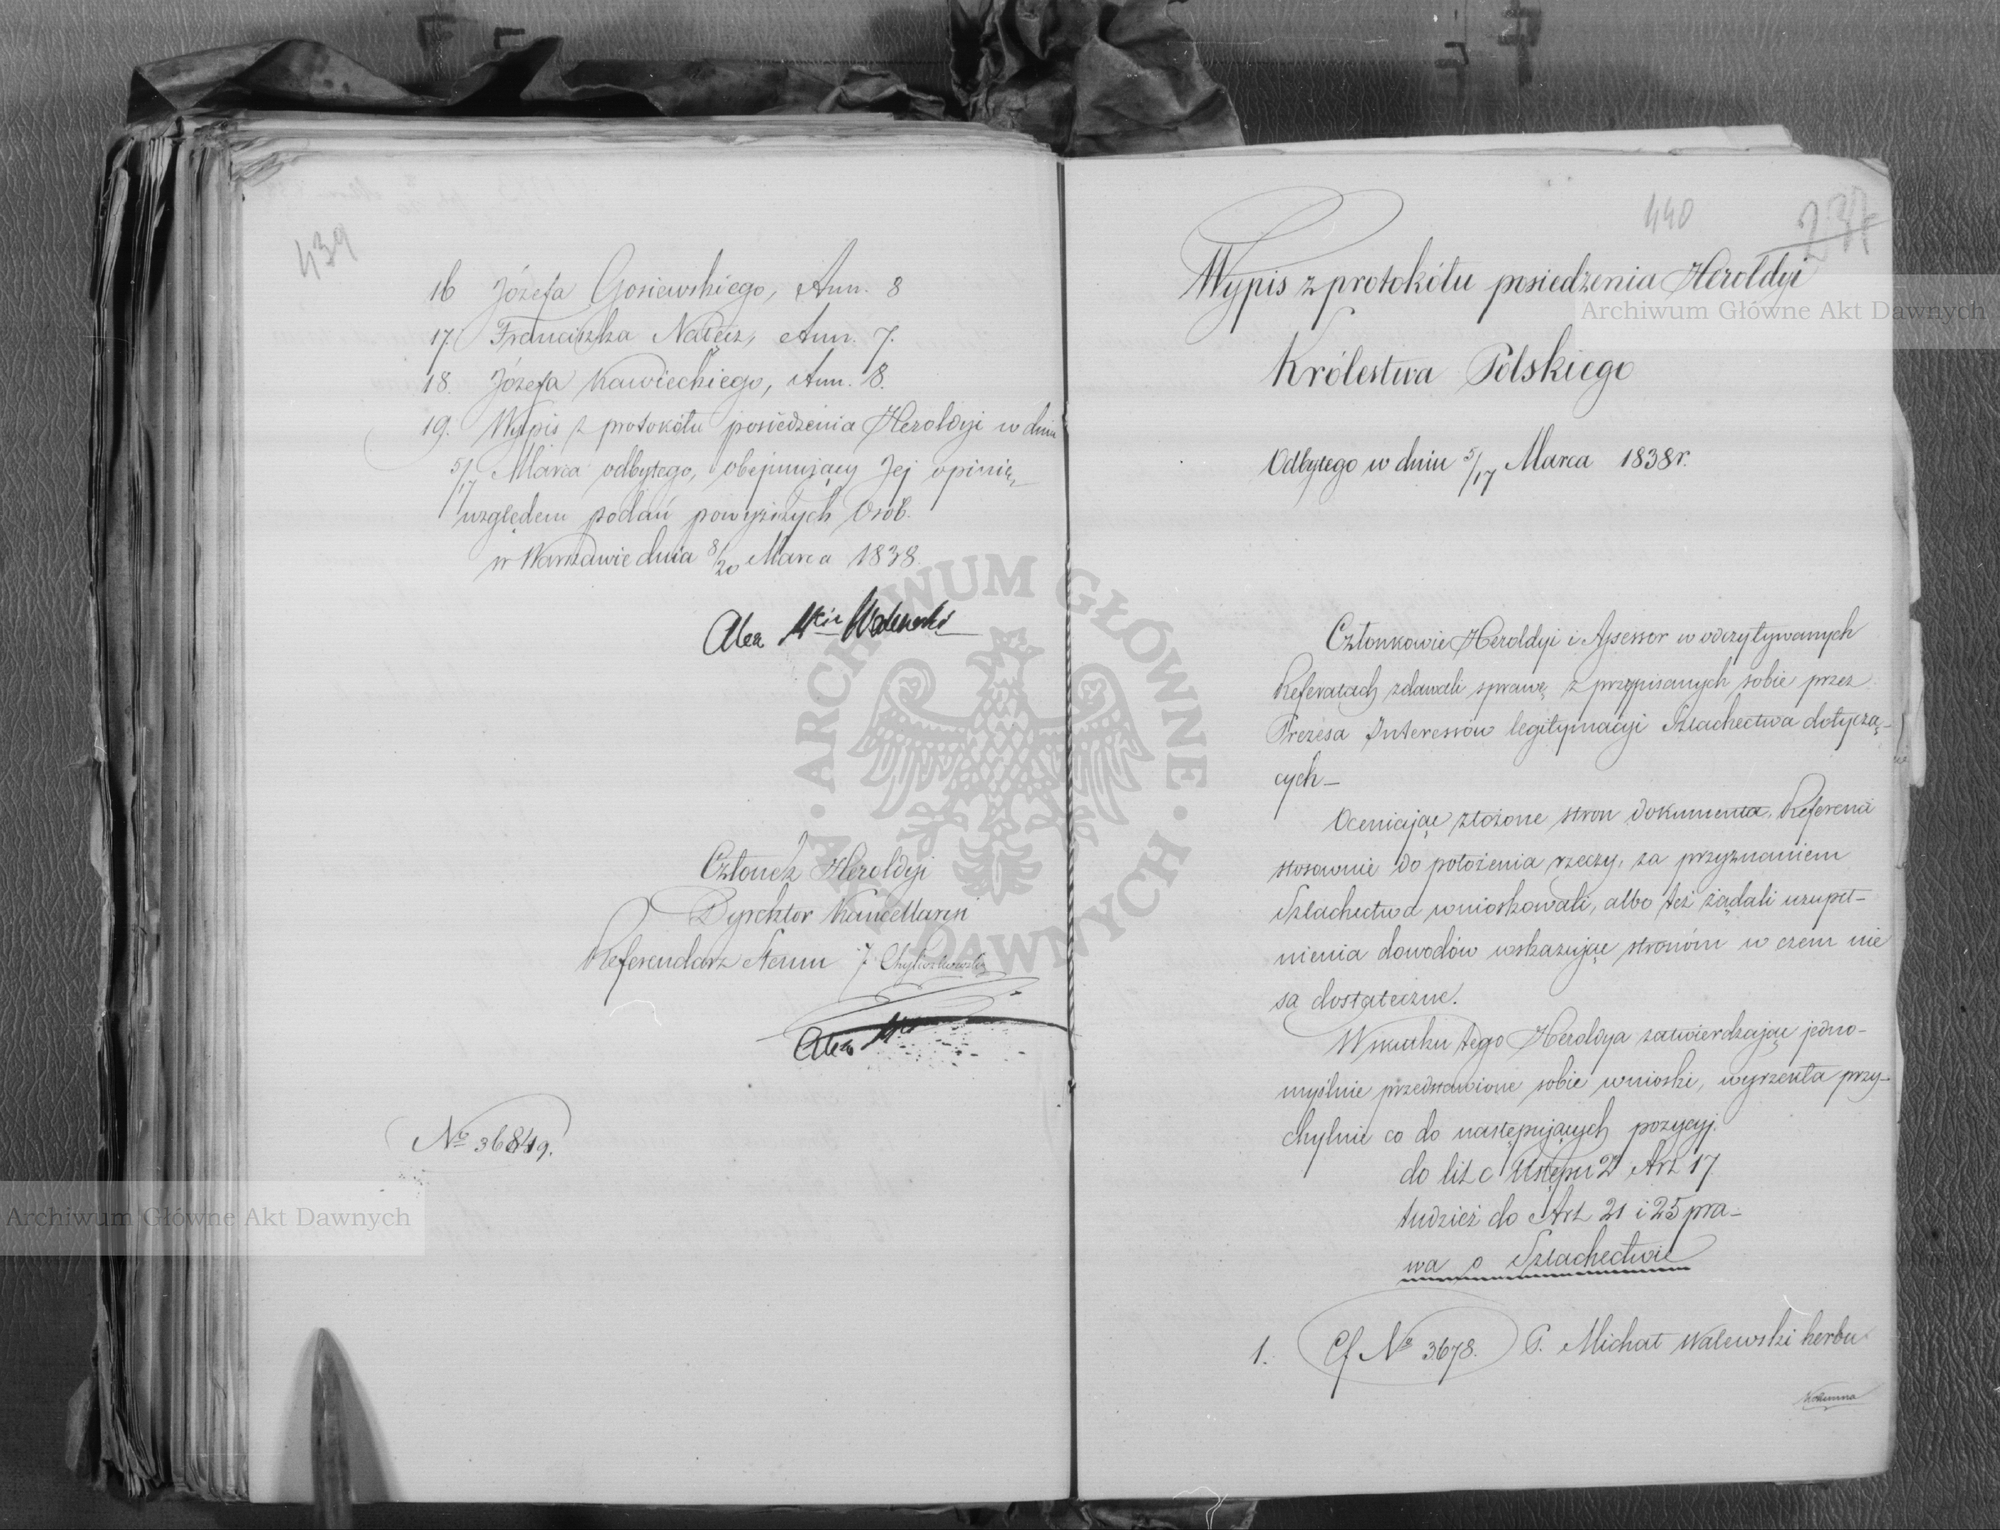 439
16 Józefa Gosiewskiego, Ann. 8
17. Franciszka Nałęcz, Ann. 7.
18. Józefa Kawieckiego, Ann. 8.
19. Wypis z protokółu posiedzenia Heroldyi w dniu
5/17 Marca odbytego, obejmujący Jej opinię,
względem podań powyższych Osób.
w Warszawie dnia 8/20 Marca 1838.
Alex Walewski
Członek Heroldyi
Dyrektor Kancellaryi
Referendarz Stanu J
Alex
No 36849.
440
237
Wypis z protokółu posiedzenia Heroldyi
Królestwa Polskiego
Odbytego w dniu 5/17 Marca 1838r.
Członkowie Heroldyi i Assessor w odczytywanych
Referatach zdawali sprawę z przypisanych sobie przez
Prezesa Interessów legitymacyi Szlachectwa dotyczą-
cych—
Oceniając złożone stron dokumenta, Referenci
stosownie do położenia rzeczy, za przyznaniem
Szlachectwa wnioskowali, albo też żądali uzupeł-
nienia dowodów wskazując stronóm w czem nie
są dostateczne.
W skutku tego Heroldya zatwierdzając jedno-
myślnie przedstawione sobie wnioski, wyrzekła przy-
chylnie co do następujących pozycyj.
do lit c Ustępu 2 Art 17
tudzież do Art 21 i 25 pra-
wa o Szlachectwie
1. Cf No 3678. P. Michał Walewski herbu
Kolumna
Archiwum Główne Akt Dawnych
Archiwum Główne Akt Dawnych
ARCHIWUM GŁÓWNE AKT DAWNYCH